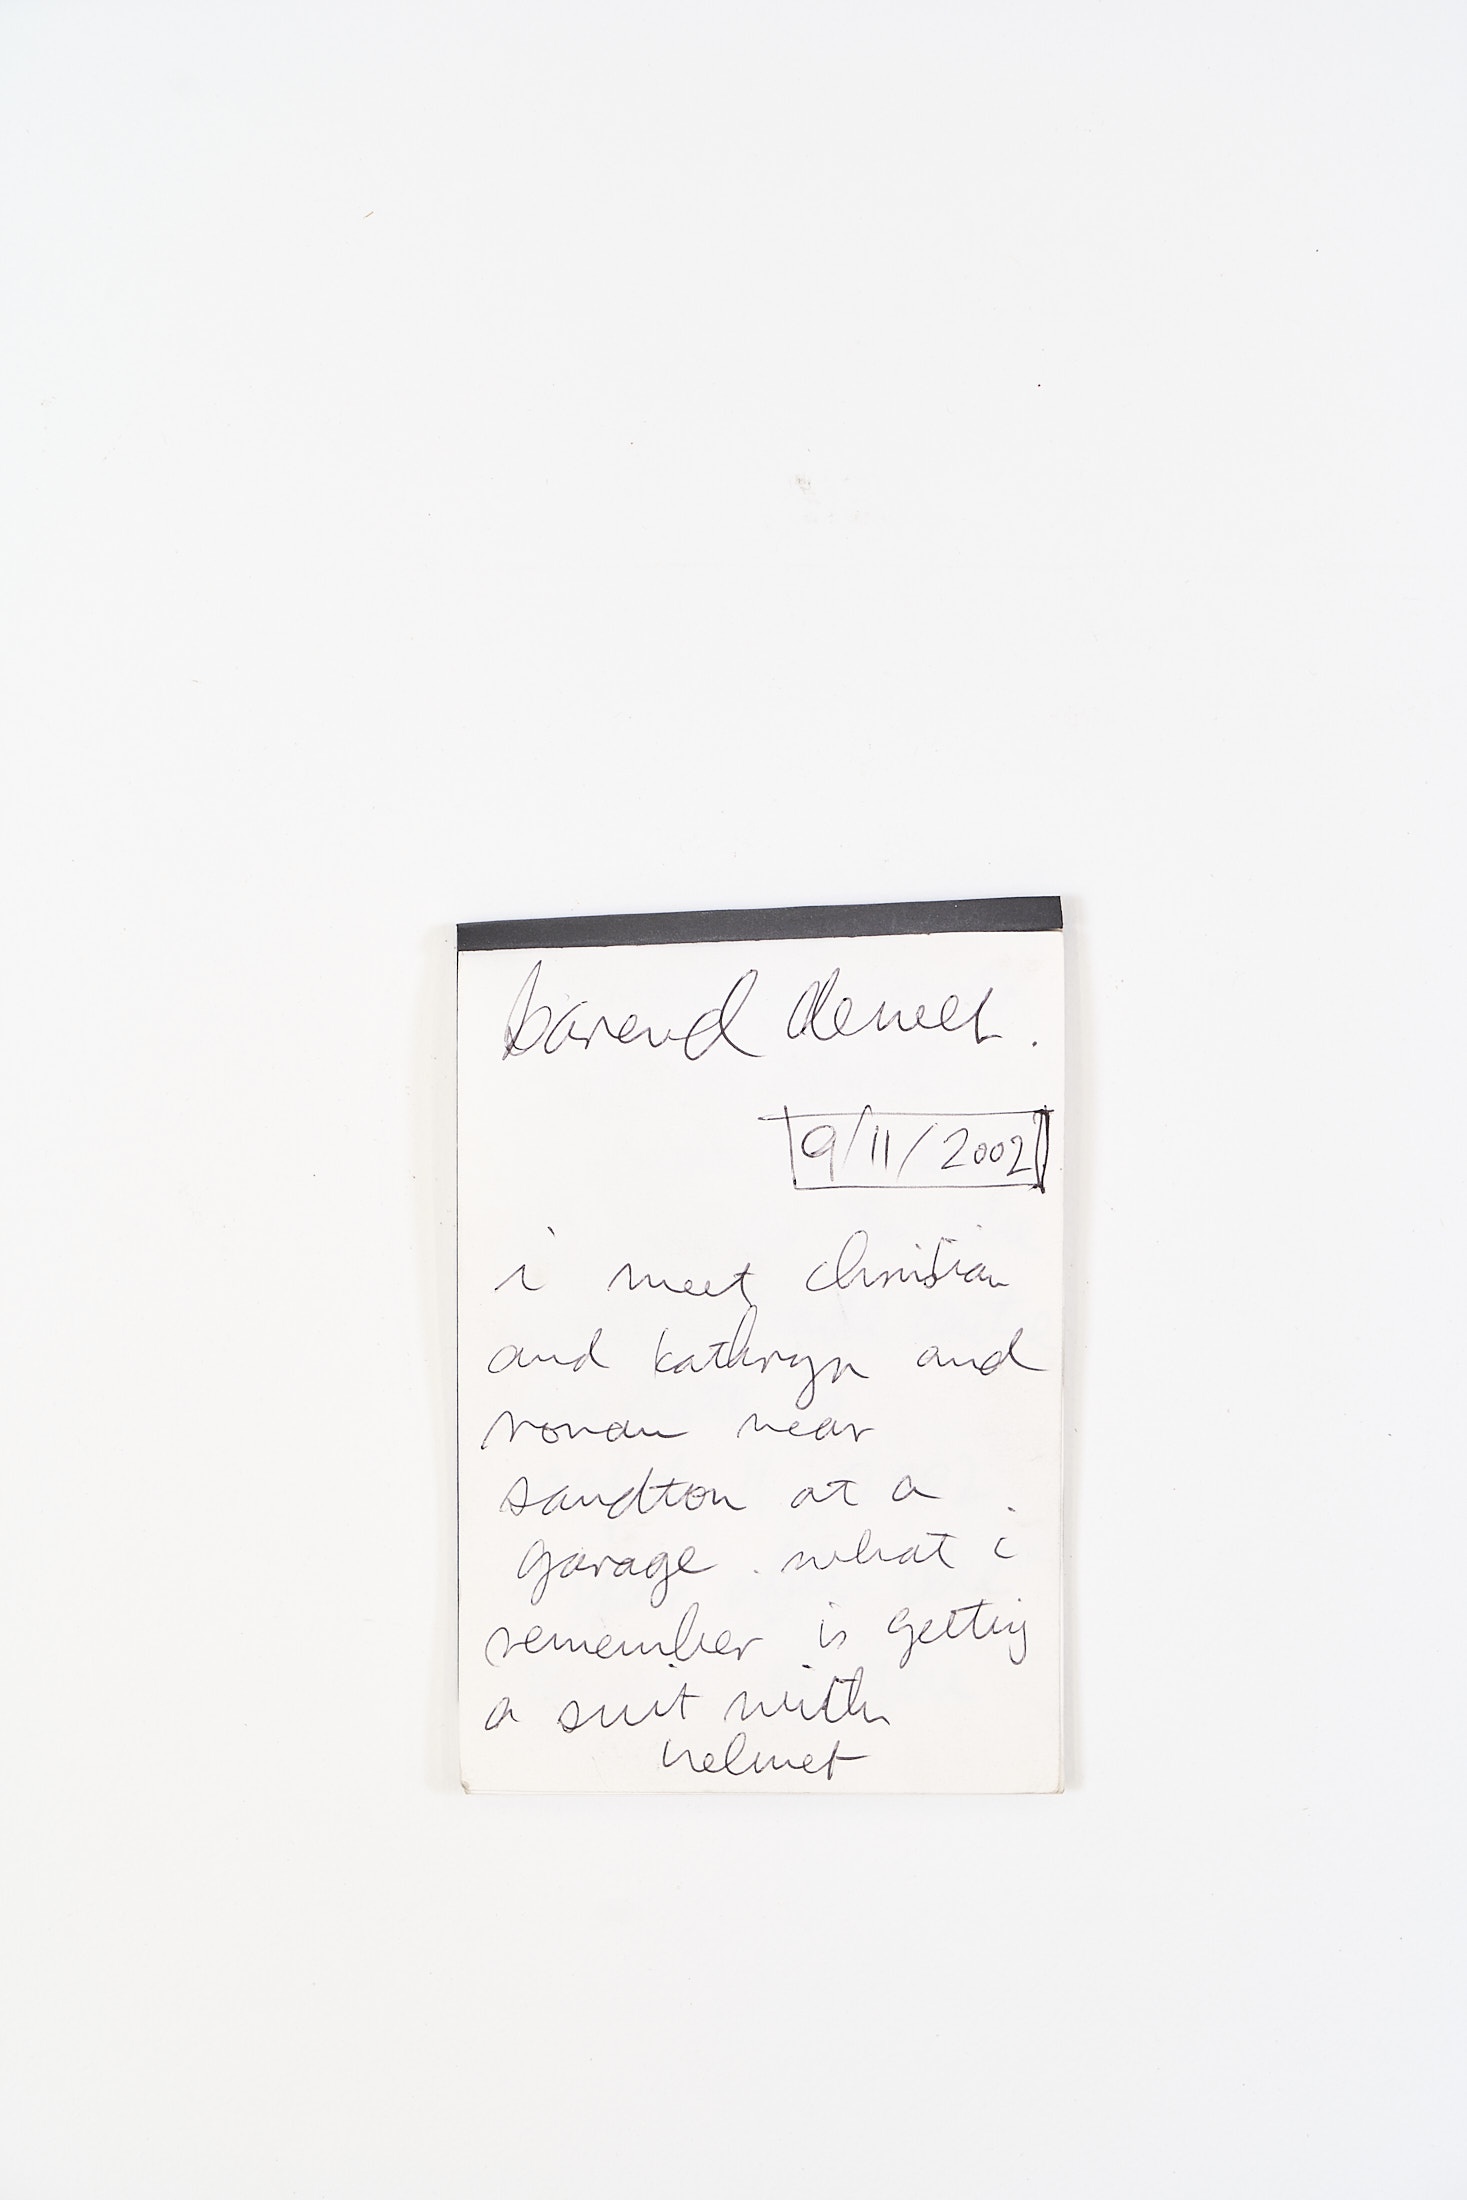 barend dewet.
9/11/2002
i meet christian
and kathryn and
rowan near
sandton at a
garage. what i
remember is getting
a suit with
helmet